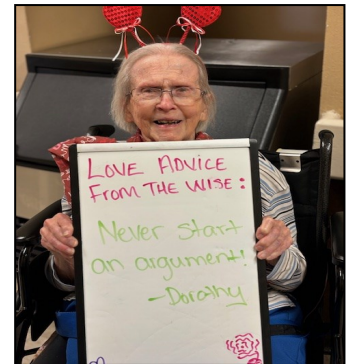 LOVE ADVICE
FROM THE WISE:
Never start
an argument!
-Dorothy